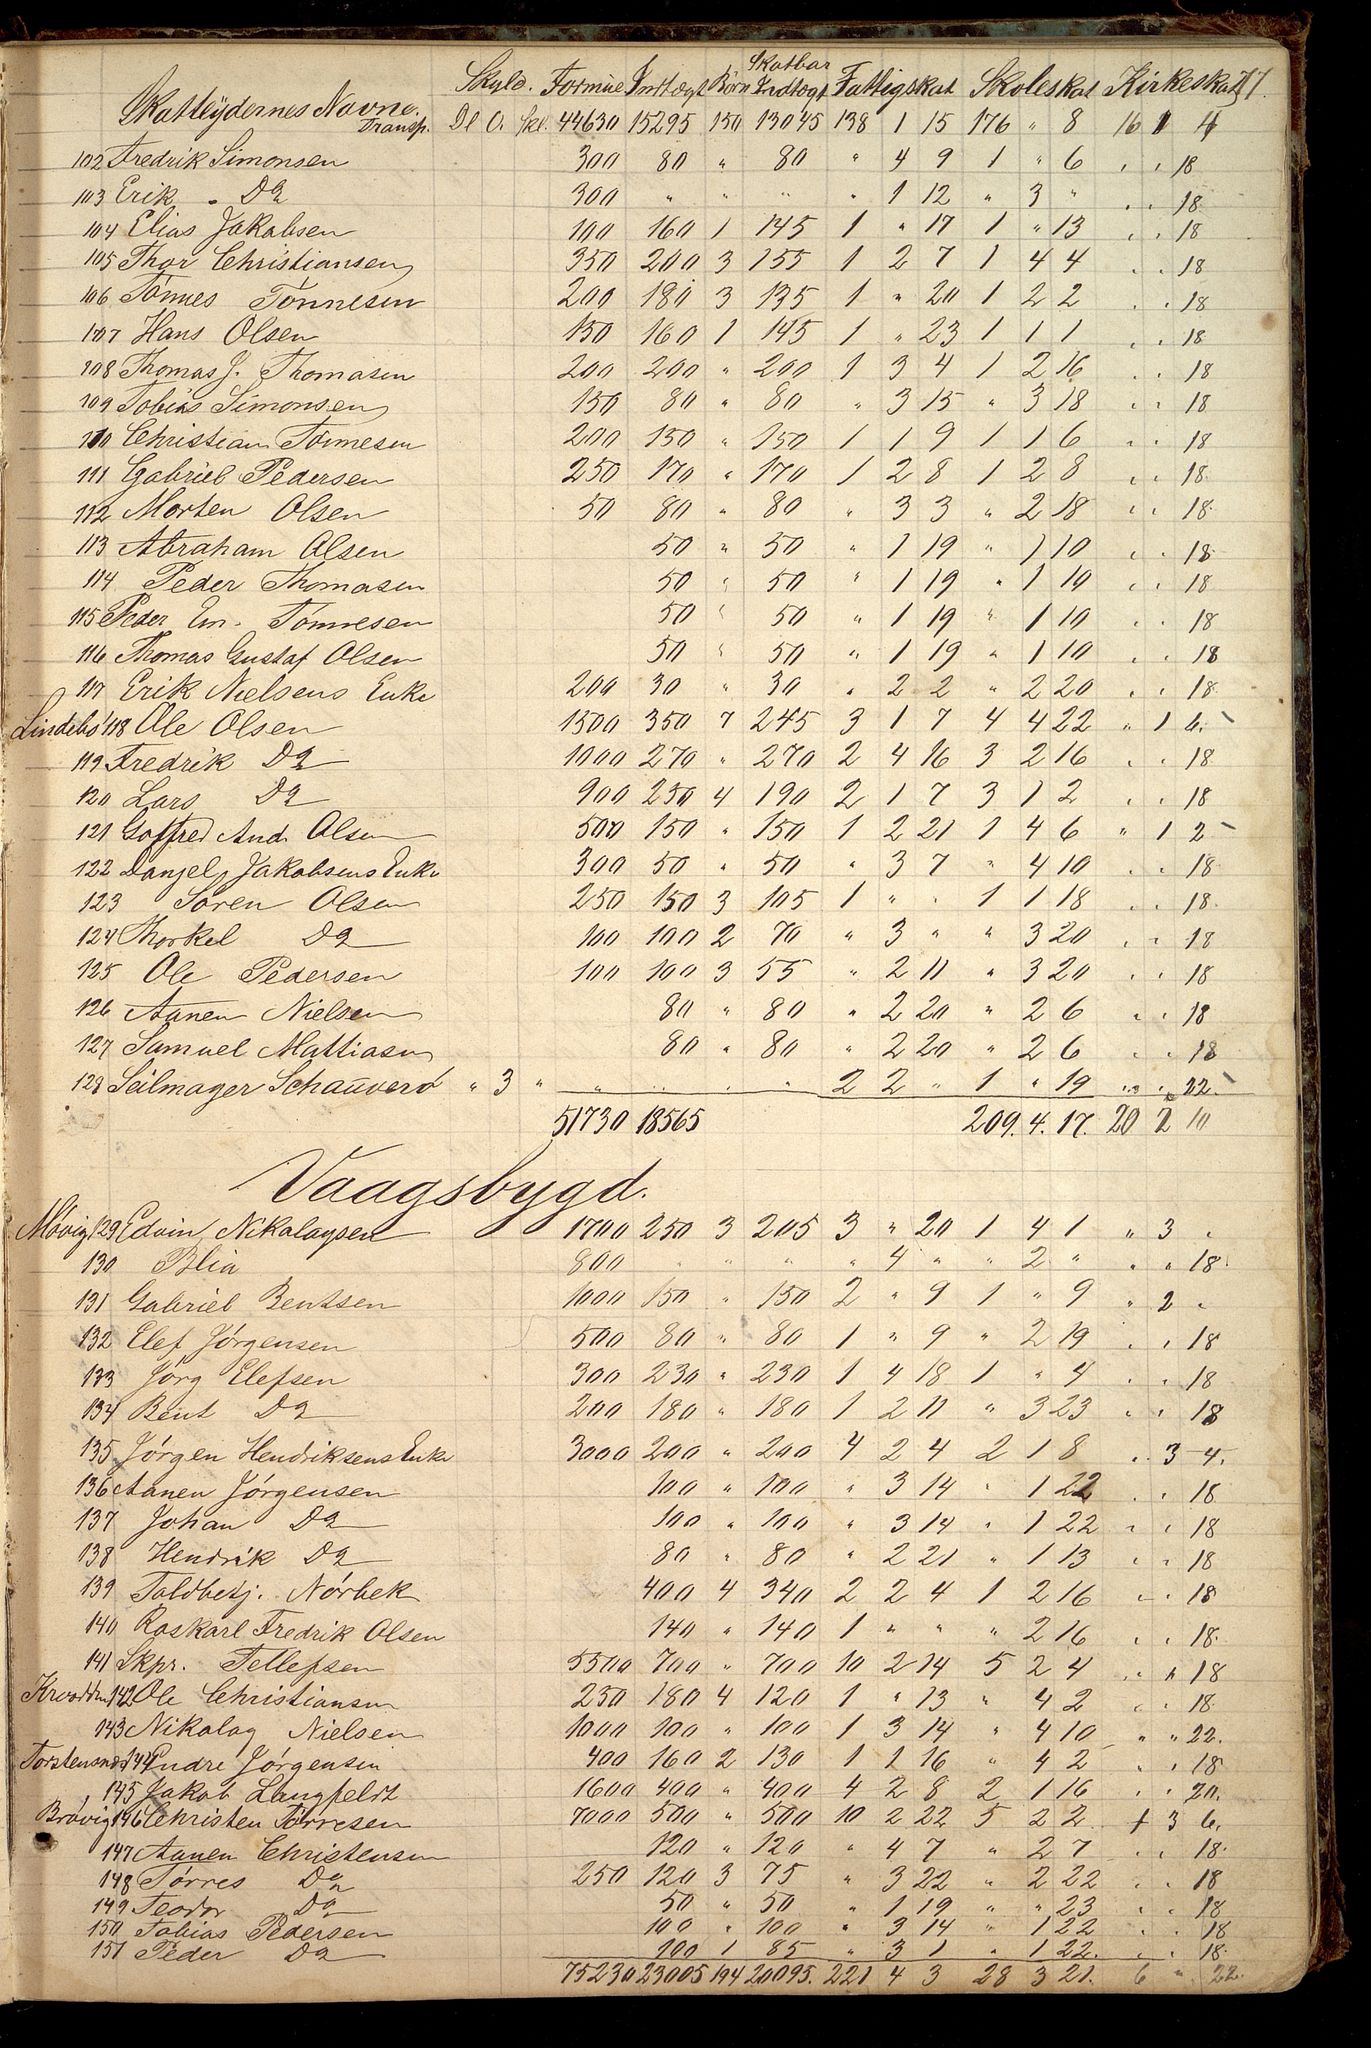 Skatteydernes Navne. Skyld. Formue Indtægt Børn Skatbar Indtægt Fattigskat Skoleskat Kirkeskat 77.
Transp. Dl O. Skl. 44630 15295 150 13045 138 1 15 176 " 8 16 1 4
102 Fredrik Simonsen 300 80 " 80 " 4 9 1 " 6 " " 18
103 Erik " Do 300 " " " " 1 12 " 3 " " " 18
104 Elias Jakobsen 100 160 1 145 1 " 17 1 " 13 " " 18
105 Thor Christiansen 350 200 3 155 1 2 7 1 4 4 " " 18
106 Tønnes Tønnesen 200 180 3 135 1 " 20 1 2 2 " " 18
107 Hans Olsen 150 160 1 145 1 " 23 1 1 1 " " 18
108 Thomas J. Thomasen 200 200 " 200 1 3 4 1 2 16 " " 18
109 Tobias Simonsen 150 80 " 80 " 3 15 " 3 18 " " 18
110 Christian Tønnesen 200 150 " 150 1 1 9 1 1 6 " " 18
111 Gabriel Pedersen 250 170 " 170 1 2 8 1 2 8 " " 18
112 Morten Olsen 50 80 " 80 " 3 3 " 2 18 " " 18
113 Abraham Olsen 50 " 50 " 1 19 " 1 10 " " 18
114 Peder Thomasen 50 " 50 " 1 19 " 1 10 " " 18
115 Peder Em. Tønnesen 50 " 50 " 1 19 " 1 10 " " 18
116 Thomas Gustaf Olsen 50 " 50 " 1 19 " 1 10 " " 18
117 Erik Nielsens Enke 200 30 " 30 " 2 2 " 2 20 " " 18
Lindebø 118 Ole Olsen 1500 350 7 245 3 1 7 4 4 22 " 1 6
119 Fredrik Do 1000 270 " 270 2 4 16 3 2 16 " " 18
120 Lars Do 900 250 4 190 2 1 7 3 1 2 " " 18
121 Gotfred And. Olsen 500 150 " 150 1 2 21 1 4 6 " 1 2
122 Danjel Jakobsens Enke 300 50 " 50 " 3 7 " 4 10 " " 18
123 Søren Olsen 250 150 3 105 1 " " 1 1 18 " " 18
124 Thorkel Do 100 100 2 70 " 3 " " 3 20 " " 18
125 Ole Pedersen 100 100 3 55 " 2 11 " 3 20 " " 18
126 Aanen Nielsen 80 " 80 " 2 20 " 2 6 " " 18
127 Samuel Mattiasen 80 " 80 " 2 20 " 2 6 " " 18
128 Seilmager Schauverø " 3 " " " " " 2 2 " 1 " 19 " " 22
51730 18565 209. 4. 17. 20 2 10
Vaagsbygd.
Møvig 129 Edvin Nikolaysen 1700 250 3 205 3 " 20 1 4 1 " 3 "
130 Blia 800 " " " " 4 " " 2 " " " 18
131 Gabriel Bentsen 1000 150 " 150 2 " 9 1 " 9 " 2 "
132 Elef Jørgensen 500 80 " 80 1 " 9 " 2 19 " " 18
133 Jørg Elefsen 300 230 " 230 1 4 18 1 " 4 " " 18
134 Bent Do 200 180 " 180 1 2 11 " 3 23 " " 18
135 Jørgen Hendriksens Enke 3000 200 " 200 4 2 4 2 1 8 " 3 4
136 Aanen Jørgensen 100 " 100 " 3 14 " 1 22 " " 18
137 Johan Do 100 " 100 " 3 14 " 1 22 " " 18
138 Hendrik Do 80 " 80 " 2 21 " 1 13 " " 18
139 Toldbetj. Nørbek 400 4 340 2 2 4 1 2 16 " " 18
140 Roskarl Fredrik Olsen 140 " 140 1 " " " 2 16 " " 18
141 Skpr. Tellefsen 5500 700 " 700 10 2 14 5 2 4 " " 18
142 Ole Christiansen 250 180 4 120 1 " 13 " 4 2 " " 18
143 Nikolag Nielsen 1000 100 " 100 1 3 14 " 4 10 " " 22
144 Endre Jørgensen 400 160 2 130 1 1 16 " 4 2 " " 18
145 Jakob Langfeldt 1600 400 " 400 4 2 8 2 1 16 " " 20
Brøvig 146 Christen Tørresen 7000 500 " 500 10 2 22 5 2 2 3 6
147 Aanen Christensen 120 " 120 " 4 7 " 2 7 " " 18
148 Tørres Do 250 120 3 75 " 3 22 " 2 22 " " 18
149 Teodor Do 50 " 50 " 1 19 " " 23 " " 18
150 Tobias Pedersen 100 " 100 " 3 14 " 1 22 " " 18
151 Peder Do 100 1 85 " 3 1 " 1 22 " " 18
75230 23005 194 20095 221 4 3 28 3 21. 6 " 22